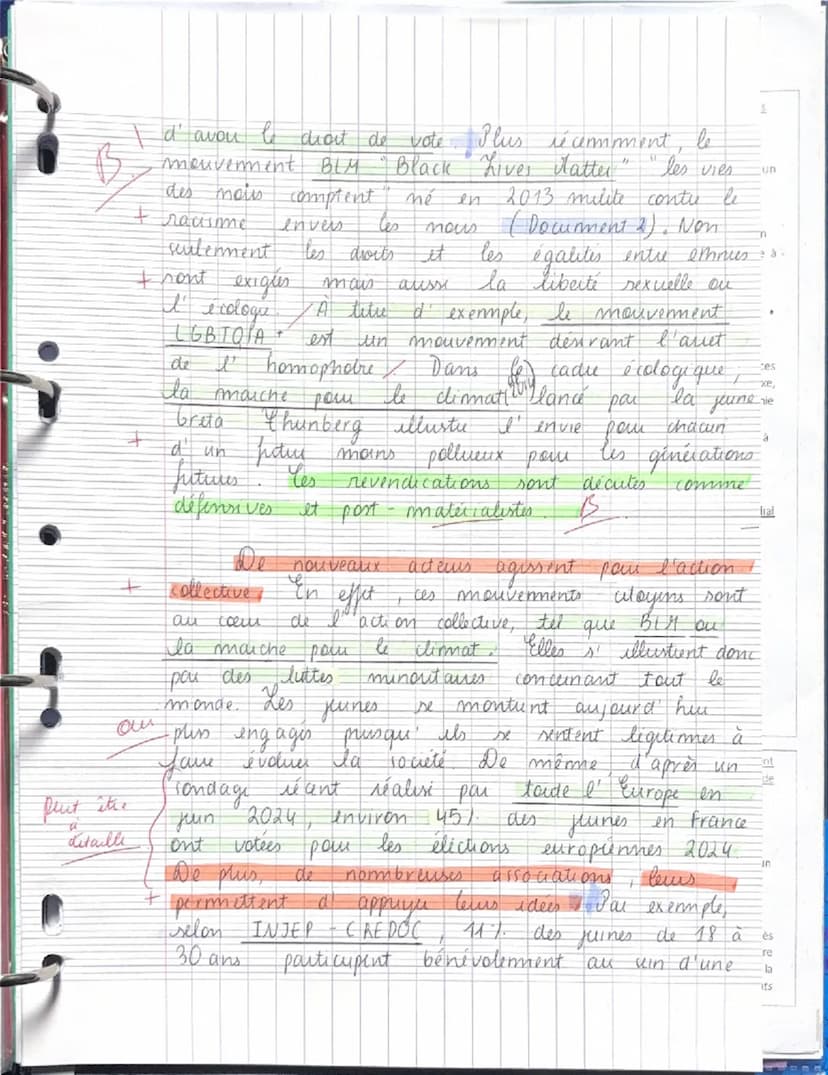 d'avoir le droit de vote. Plus récemment, le
B. mouvement BLM "Black Lives Matter" "les vies
des noirs comptent" né en 2013 milite contre le
+ racisme envers les noirs (Document 2). Non
seulement les droits et les égalités entre ethnies
+ sont exigés mais aussi la liberté sexuelle ou
l'écologie. / À titre d'exemple, le mouvement
LGBTQIA+ est un mouvement désirant l'arret
de l'homophobie / Dans le cadre écologique,
la marche pour le climat lancé par la jeune
Greta Thunberg illustre l'envie pour chacun
+ d'un futur moins pollueux pour les générations
futures. Ces revendications sont décrites comme
défensives et post-matérialistes. B
De nouveaux acteurs agissent pour l'action
+ collective. En effet, ces mouvements citoyens sont
au cœur de l'action collective, tel que BLM ou
la marche pour le climat. Elles s'illustrent donc
par des luttes minoritaires concernant tout le
monde. Les jeunes se montrent aujourd'hui
oui plus engagés puisqu'ils se sentent légitimes à
faire évoluer la société. De même, d'après un
sondage récent réalisé par toute l'Europe en
juin 2024, environ 45% des jeunes en France
ont votées pour les élections européennes 2024.
Peut être
à
détailler
De plus, de nombreuses associations, leurs
+ permettent d'appuyer leurs idées. Par exemple,
selon INJEP - CREDOC, 11% des jeunes de 18 à
30 ans participent bénévolement au sein d'une